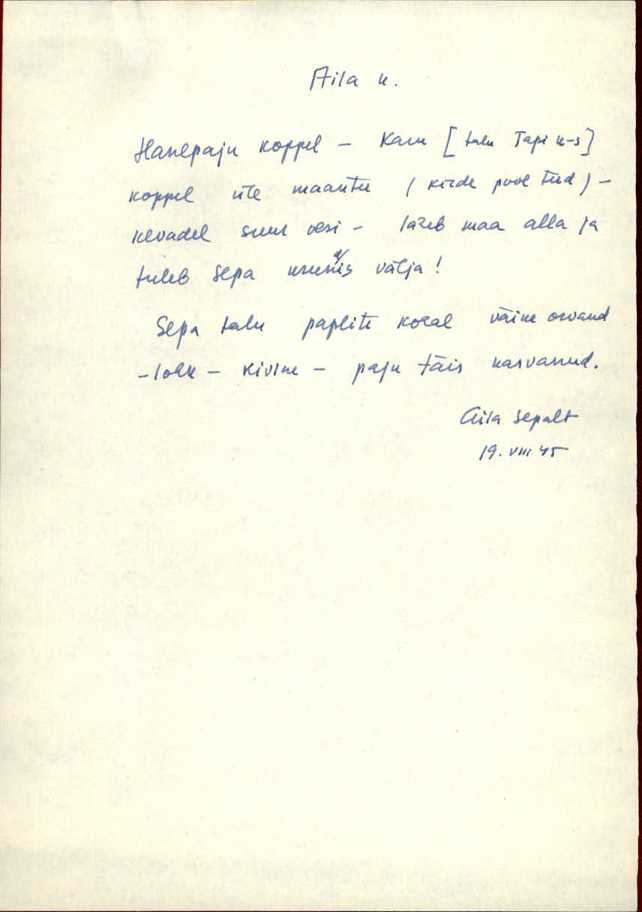 Aila k.
Hanepaju koppel – Karu [talu Tapi k-s]
koppel üle maantee (kirde pool teed) –
kevadel suur vesi – läheb maa alla ja
tuleb Sepa välja!
Sepa talu paplite kohal väike orvand
– lohk – kivine – paju täis kasvanud.
Aila Sepalt
19. VIII 45